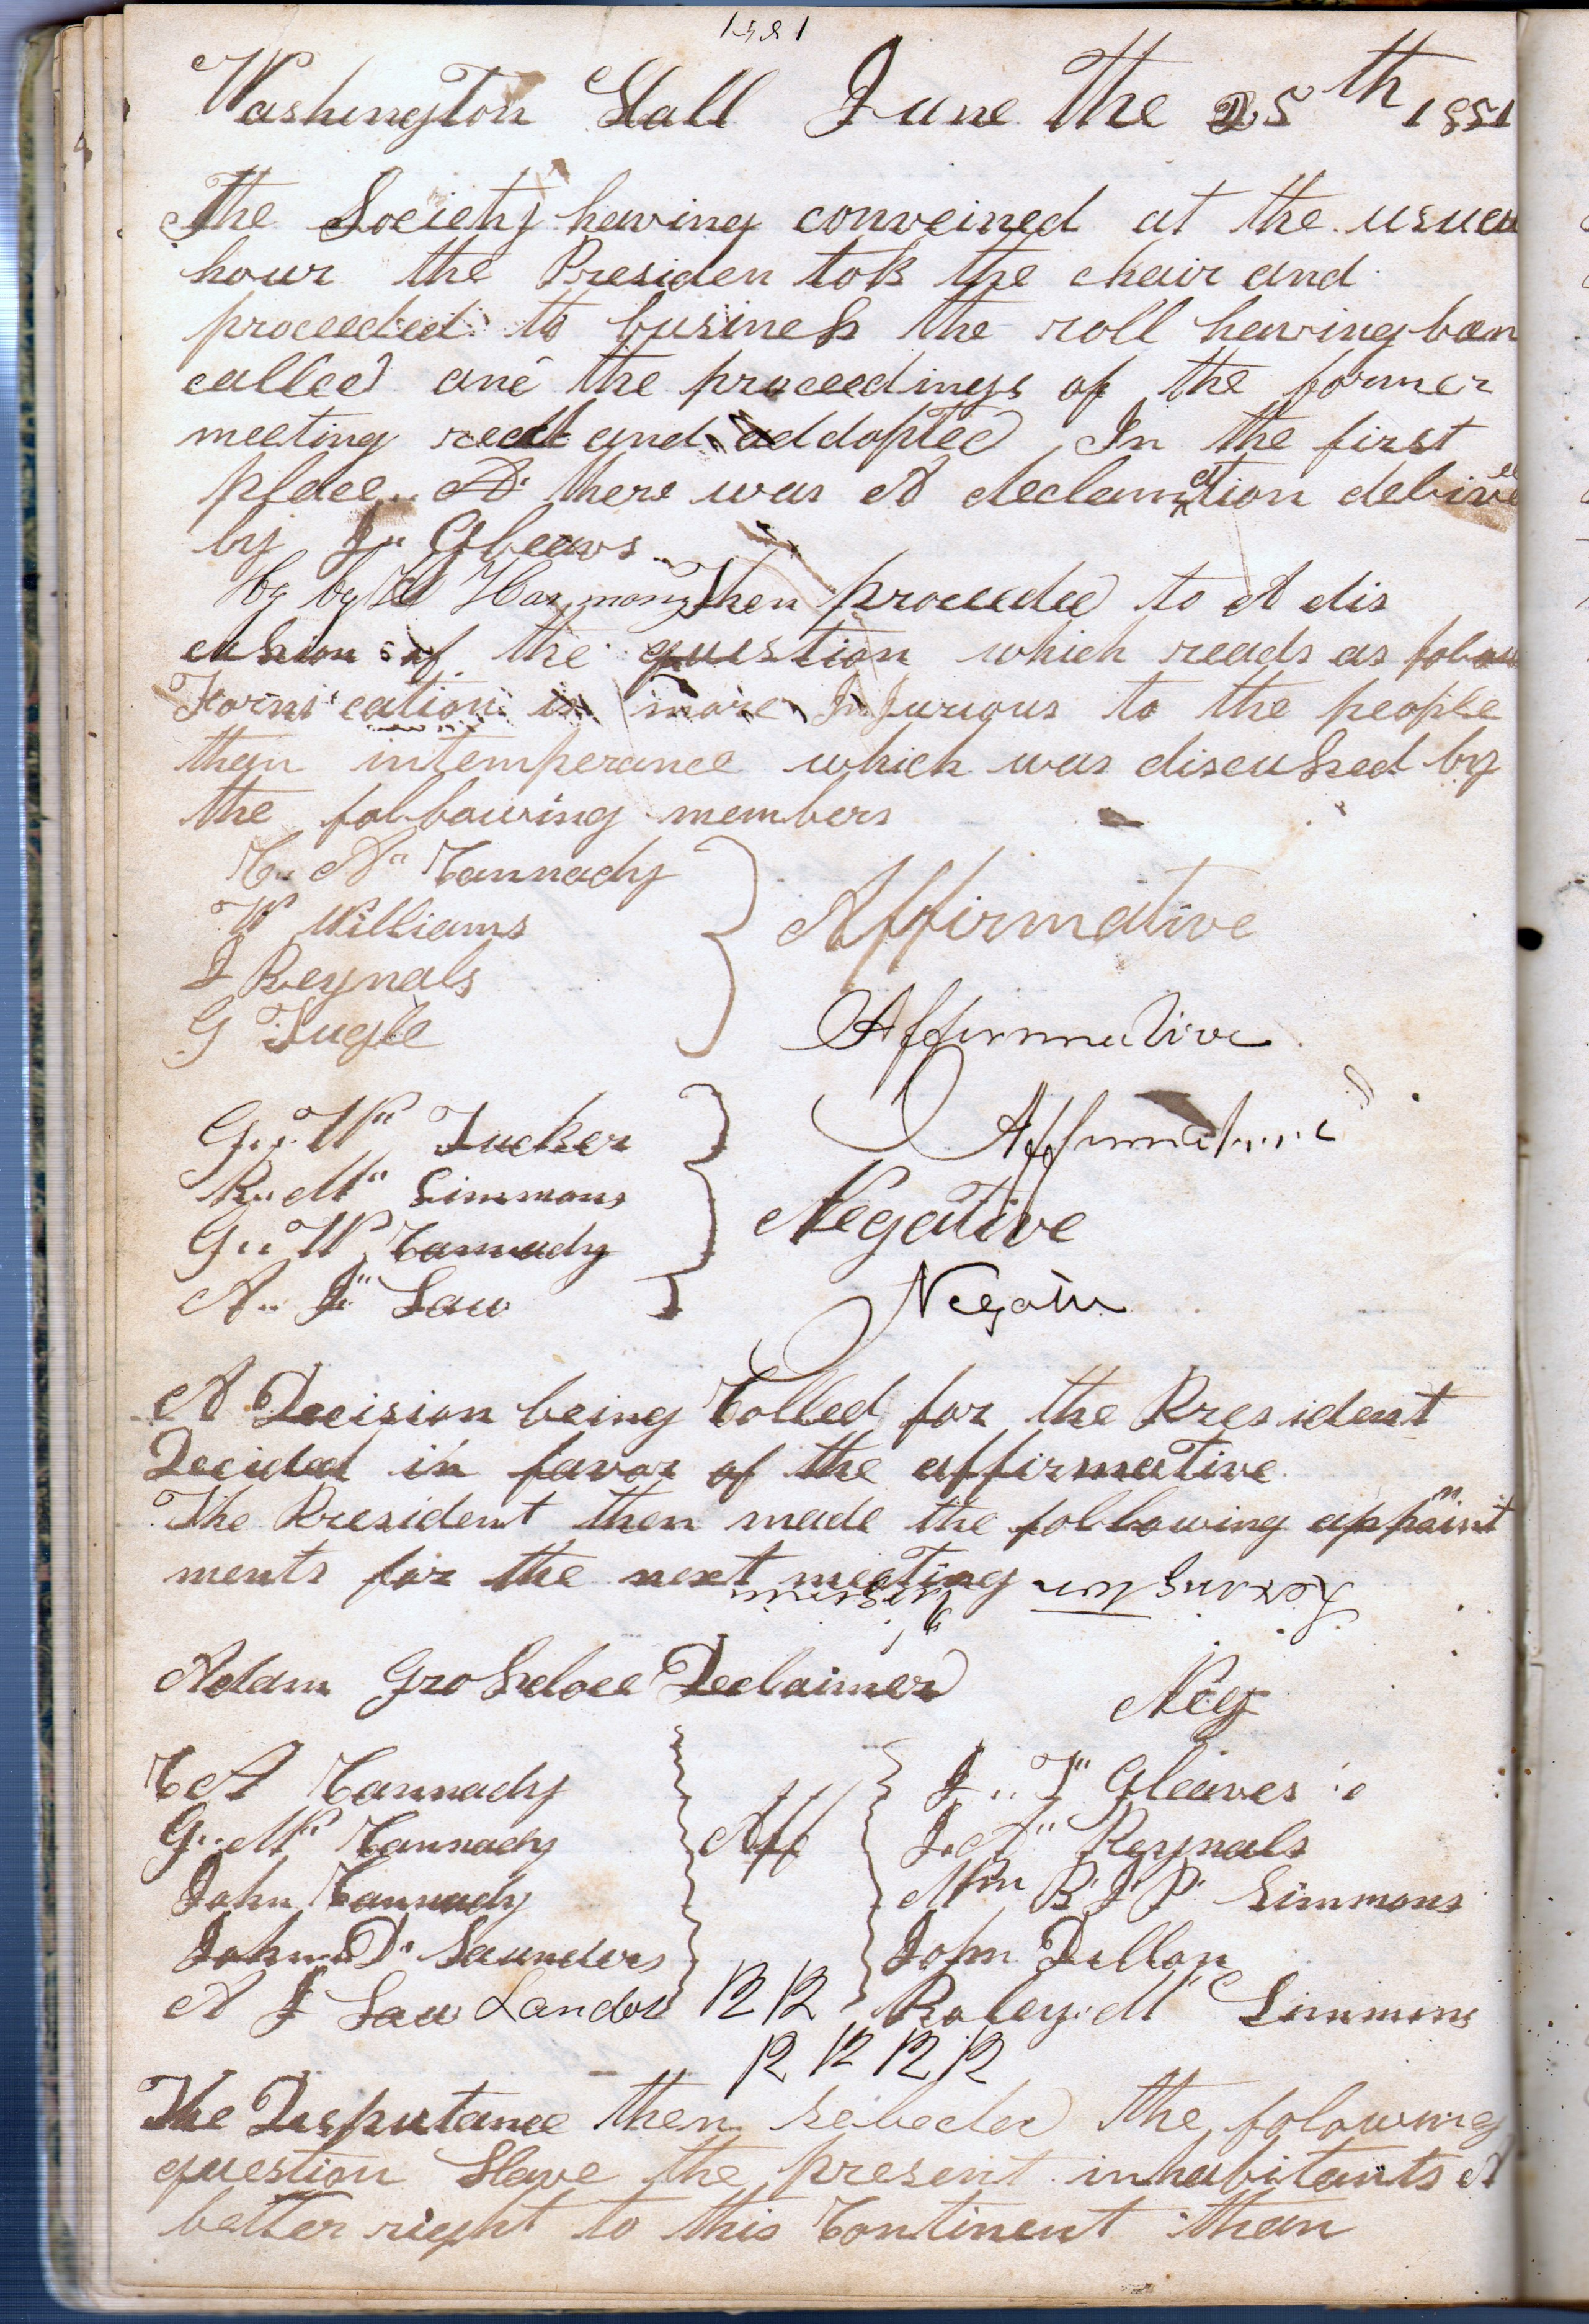 1581
Washington Hall June the 25th 1851
The Society having conveined at the usual
hour the Presiden tok the chair and
proceeded to business the roll having ben
called and the proceedings of the former
meeting read and addopted In the first
place there was A declamation delive
by J" Gleaves
by by W Harmon, then proceded to A dis
cussion of the question which reads as folow
Forni cation is more InJurious to the people
than intemperance which was discussed by
the following members
C" A" Cannady
W Williams
J Reynals
G Tugle
Affirmative
Affirmative
Affirmative
G" W" Tucker
R" M" Simmons
G" W Cannady
A" J" Saw
Negative
Negativ
A Decision being Called for the President
Decided in favor of the affirmative
The President then made the following appoint
ments for the next meeting
Adam Grossdoce Declaimer
Neg
C A Cannady
G" W" Cannady
John Cannady
John D" Saunders
A J Saw Landor
Aff
J" T" Gleaves
J. A" Reynals
Wm B J P Simmons
John Dillon
Roley M" Simmons
12 12
12 12 12 12
The Disputance then selected the folowing
question Have the present inhabitants A
better right to this Continent than